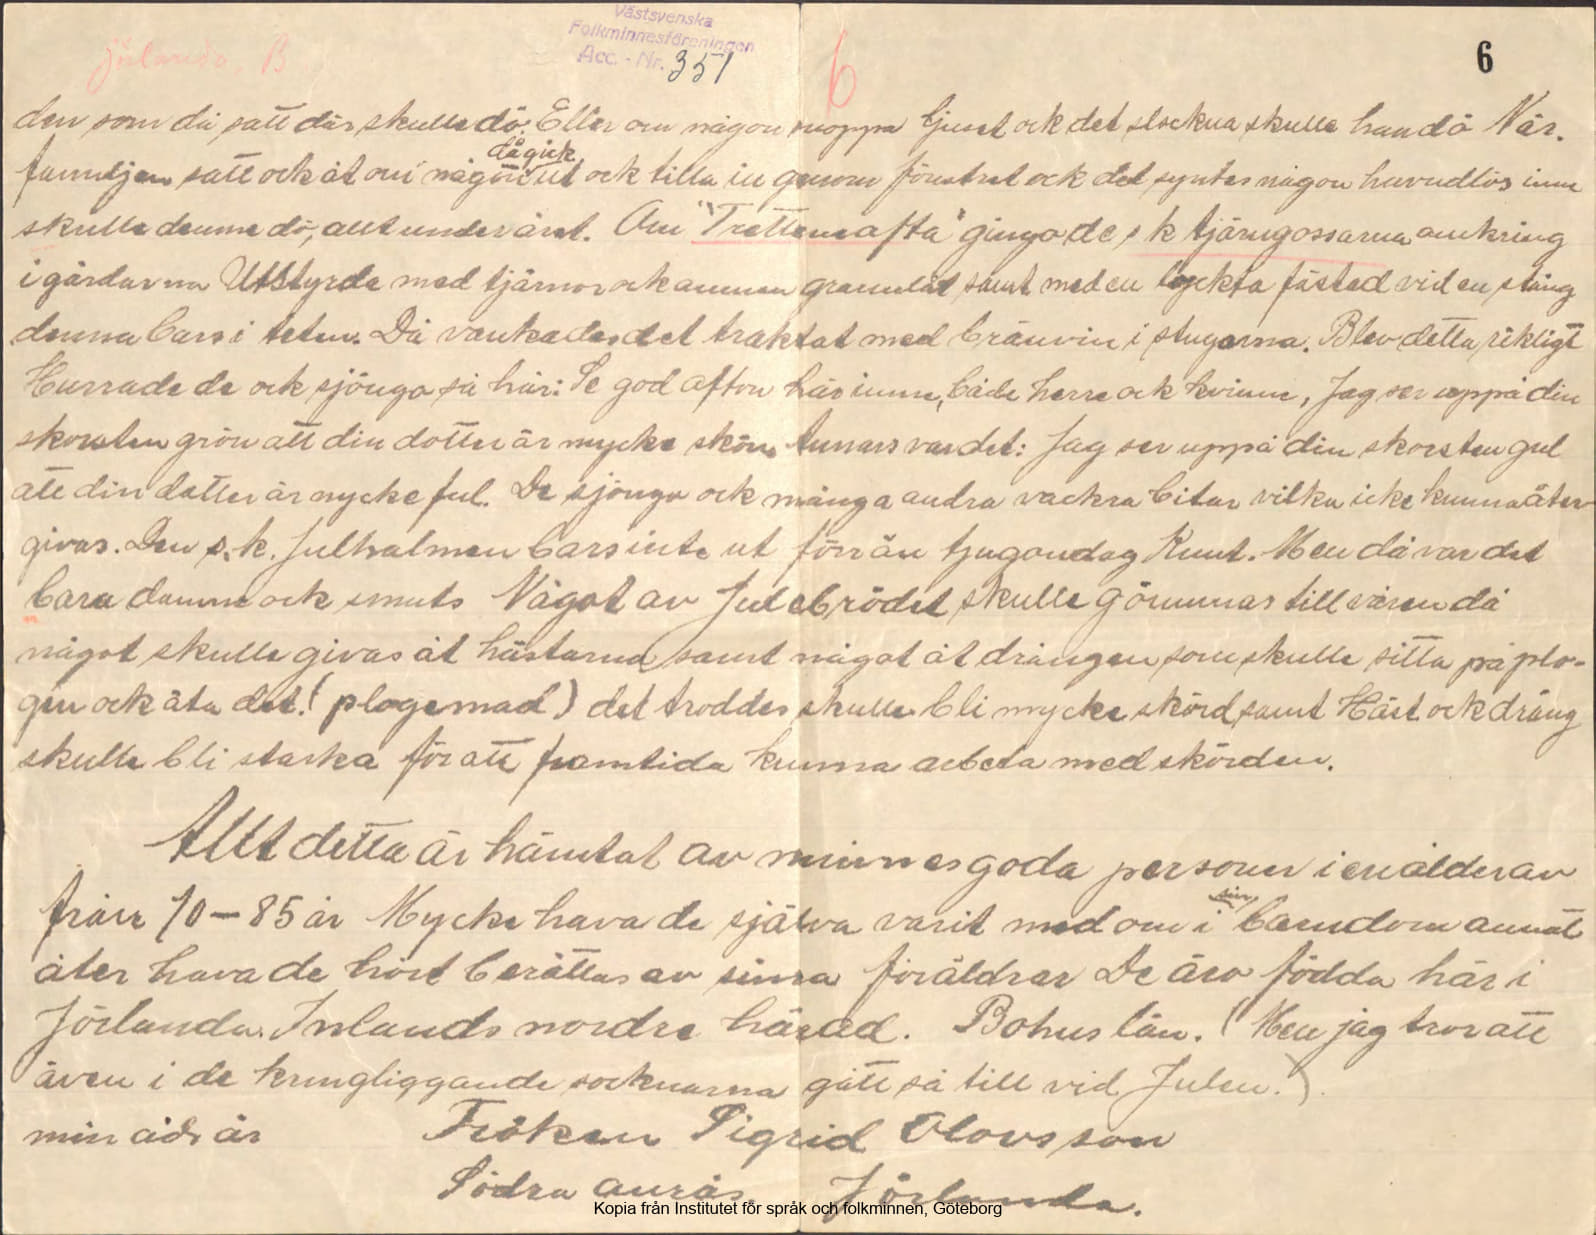 Jörlanda. B
Västsvenska
Folkminnesföreningen
Acc. - Nr. 351
6
6
den som då satt där skulle dö. Eller om någon snoppa ljuset ock det slockna skulle han dö När.
familjen satt ock åt om någon då gick ut ock titta in genom fönstret ock det syntes någon huvudlös inne
skulle denne dö, allt under året. Om "Trettoneafta" gingo de s k stjärngossarna omkring
i gårdarna Utstyrda med stjärnor ock annan grannlåt samt med en lyckta fästad vid en stång
denna bars i teten. Då vankades det traktat med brännvin i stugorna. Blev detta rikligt
Hurrade de ock sjöngo så här: Se god afton här inne, både herre ock kvinne, Jag ser uppå din
skorsten grön att din dotter är mycke skön Annars var det: Jag ser uppå din skorsten gul
att din dotter är mycke ful. De sjöngo ock många andra vackra bitar vilka icke kunna åter-
givas. Den s.k. Julhalmen bars inte ut förr än tjugondag Knut. Men då var det
bara damm ock smuts Något av Julebrödet skulle gömmas till våren då
något skulle givas åt hästarna samt något åt drängen som skulle sitta på plo-
gen ock äta det. (plogemad) det troddes skulle bli mycke skörd, samt Häst ock dräng
skulle bli starka för att framtida kunna arbeta med skörden.
Allt detta är hämtat av minnesgoda personer i en ålder av
från 70-85 år Mycke hava de själva varit med om i sin barndom annat
åter hava de hört berättas av sinna föräldrar De äro födda här i
Jörlanda. Inlands nordre härad. Bohus län. (Men jag tror att
även i de kringliggande socknarna gått så till vid Julen.)
min adr är Fröken Sigrid Olovsson
Södra aurås. Jörlanda.
Kopia från Institutet för språk och folkminnen, Göteborg